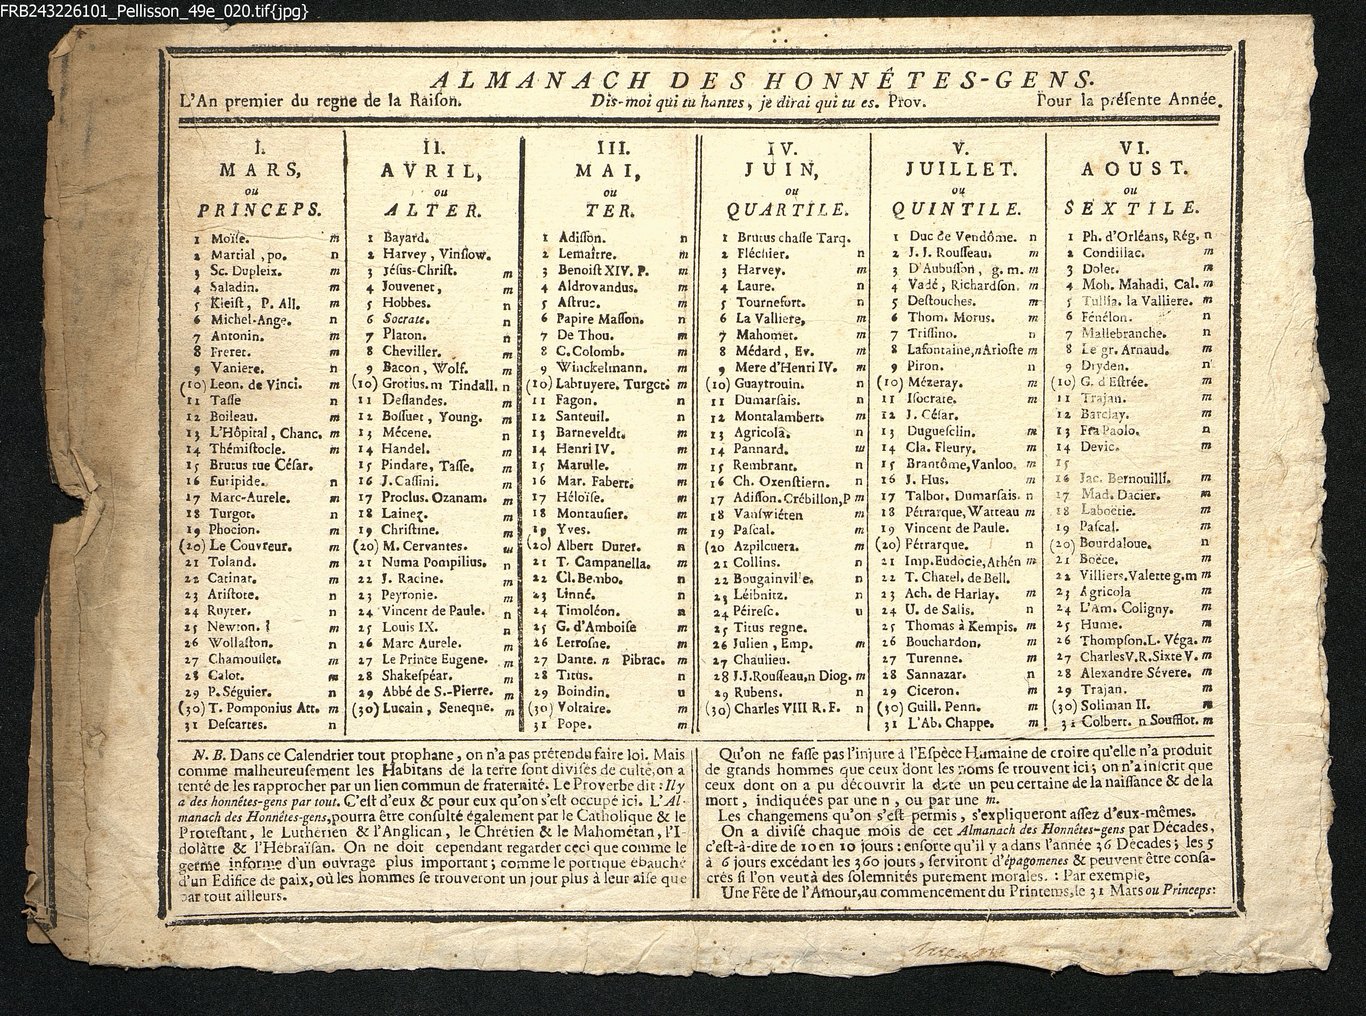 FRB243226101_Pellisson_49e_020.tif{jpg}
ALMANACH DES HONNÊTES-GENS.
L'An premier du regne de la Raison. Dis-moi qui tu hantes, je dirai qui tu es. Prov. Pour la présente Année.
I.
MARS,
ou
PRINCEPS.
1 Moïse. m
2 Martial, po. n
3 Sc. Dupleix. m
4 Saladin. m
5 Kleist, P. All. m
6 Michel-Ange. n
7 Antonin. m
8 Freret. m
9 Vaniere. n
(10) Leon. de Vinci. m
11 Tasse n
12 Boileau. m
13 L'Hôpital, Chanc. m
14 Thémistocle. m
15 Brutus tue César.
16 Euripide. n
17 Marc-Aurele. m
18 Turgot. n
19 Phocion. m
(20) Le Couvreur. m
21 Toland. m
22 Catinat. m
23 Aristote. n
24 Ruyter. n
25 Newton. m
26 Wollaston. n
27 Chamousset. m
28 Calot. m
29 P. Séguier. n
(30) T. Pomponius Att. m
31 Descartes. n
II.
AVRIL,
ou
ALTER.
1 Bayard.
2 Harvey, Vinslow.
3 Jésus-Christ. m
4 Jouvenet, m
5 Hobbes. n
6 Socrate. n
7 Platon. n
8 Cheviller. m
9 Bacon, Wolf. m
(10) Grotius. m Tindall. n
11 Deslandes. m
12 Bossuet, Young. m
13 Mécene. n
14 Handel. m
15 Pindare, Tasse. m
16 J. Cassini. m
17 Proclus. Ozanam. m
18 Lainez. m
19 Christine. m
(20) M. Cervantes.
21 Numa Pompilius. n
22 J. Racine. m
23 Peyronie. m
24 Vincent de Paule. n
25 Louis IX. n
26 Marc Aurele. m
27 Le Prince Eugene. m
28 Shakespéar. m
29 Abbé de S.-Pierre. m
(30) Lucain, Seneque. m
III.
MAI,
ou
TER.
1 Adisson. n
2 Lemaître. m
3 Benoist XIV. P. m
4 Aldrovandus. m
5 Astruc. m
6 Papire Masson. n
7 De Thou. m
8 C. Colomb. m
9 Winckelmann. m
(10) Labruyere. Turgot. m
11 Fagon. n
12 Santeuil. n
13 Barneveldt. m
14 Henri IV. m
15 Marulle. m
16 Mar. Fabert. m
17 Héloïse. m
18 Montausier. m
19 Yves. m
(20) Albert Duret. n
21 T. Campanella. m
22 Cl. Bembo. n
23 Linné. n
24 Timoléon. n
25 G. d'Amboise m
26 Letrosne. m
27 Dante. n Pibrac. m
28 Titus. n
29 Boindin. n
(30) Voltaire. m
31 Pope. m
IV.
JUIN,
ou
QUARTILE.
1 Brutus chasse Tarq.
2 Fléchier. n
3 Harvey. m
4 Laure. n
5 Tournefort. n
6 La Valliere, m
7 Mahomet. m
8 Médard, Ev. m
9 Mere d'Henri IV. m
(10) Guaytrouin. n
11 Dumarsais. n
12 Montalembert. m
13 Agricola. n
14 Pannard.
15 Rembrant. n
16 Ch. Oxenstiern. n
17 Adisson. Crébillon, P m
18 Vanswiéten m
19 Pascal. m
(20 Azpilcueta. m
21 Collins. n
22 Bougainville. n
23 Léibnitz. n
24 Péiresc.
25 Titus regne.
26 Julien, Emp. m
27 Chaulieu.
28 J.J. Rousseau, n Diog. m
29 Rubens. n
(30) Charles VIII R. F. n
V.
JUILLET.
ou
QUINTILE.
1 Duc de Vendôme. n
2 J. J. Rousseau. m
3 D'Aubusson, g. m. m
4 Vadé, Richardson. m
5 Destouches. m
6 Thom. Morus. m
7 Trissino. n
8 Lafontaine, n Arioste m
9 Piron. n
(10) Mézeray. m
11 Isocrate. m
12 J. César.
13 Duguesclin. m
14 Cla. Fleury. m
15 Brantôme, Vanloo. m
16 J. Hus. m
17 Talbot. Dumarsais. n
18 Pétrarque, Watteau m
19 Vincent de Paule.
(20) Pétrarque. n
21 Imp. Eudocie, Athén m
22 T. Chatel. de Bell.
23 Ach. de Harlay. m
24 U. de Salis. n
25 Thomas à Kempis. m
26 Bouchardon. m
27 Turenne. m
28 Sannazar. n
29 Ciceron. m
(30) Guill. Penn. m
31 L'Ab. Chappe. m
VI.
AOUST.
ou
SEXTILE.
1 Ph. d'Orléans, Rég. n
2 Condillac. m
3 Dolet. m
4 Moh. Mahadi, Cal. m
5 Tullia. la Valliere. m
6 Fénélon. n
7 Mallebranche. n
8 Le gr. Arnaud. m
9 Dryden. n
(10) G. d'Estrée. m
11 Trajan. m
12 Barclay. m
13 Fra Paolo. n
14 Devic. m
15
16 Jac. Bernouilli. m
17 Mad. Dacier. m
18 Laboëtie. m
19 Pascal. m
(20) Bourdaloue. n
21 Boëce. m
22 Villiers. Valette g.m m
23 Agricola m
24 L'Am. Coligny. m
25 Hume. m
26 Thompson. L. Véga. m
27 Charles V. R. Sixte V. m
28 Alexandre Sévere. m
29 Trajan. m
(30) Soliman II. m
31 Colbert. n Soufflot. m
N. B. Dans ce Calendrier tout prophane, on n'a pas prétendu faire loi. Mais
comme malheureusement les Habitans de la terre sont divisés de culte, on a
tenté de les rapprocher par un lien commun de fraternité. Le Proverbe dit : Il y
a des honnêtes-gens par tout. C'est d'eux & pour eux qu'on s'est occupé ici. L'Al-
manach des Honnêtes-gens, pourra être consulté également par le Catholique & le
Protestant, le Luthérien & l'Anglican, le Chrétien & le Mahométan, l'I-
dolâtre & l'Hébraïsan. On ne doit cependant regarder ceci que comme le
germe informe d'un ouvrage plus important; comme le portique ébauché
d'un Edifice de paix, où les hommes se trouveront un jour plus à leur aise que
par tout ailleurs.
Qu'on ne fasse pas l'injure à l'Espèce Humaine de croire qu'elle n'a produit
de grands hommes que ceux dont les noms se trouvent ici; on n'a inscrit que
ceux dont on a pu découvrir la date un peu certaine de la naissance & de la
mort, indiquées par une n, ou par une m.
Les changemens qu'on s'est permis, s'expliqueront assez d'eux-mêmes.
On a divisé chaque mois de cet Almanach des Honnêtes-gens par Décades,
c'est-à-dire de 10 en 10 jours : ensorte qu'il y a dans l'année 36 Décades; les 5
à 6 jours excédant les 360 jours, serviront d'épagomenes & peuvent être consa-
crés si l'on veut à des solemnités purement morales. : Par exemple,
Une Fête de l'Amour, au commencement du Printems, le 31 Mars ou Princeps: